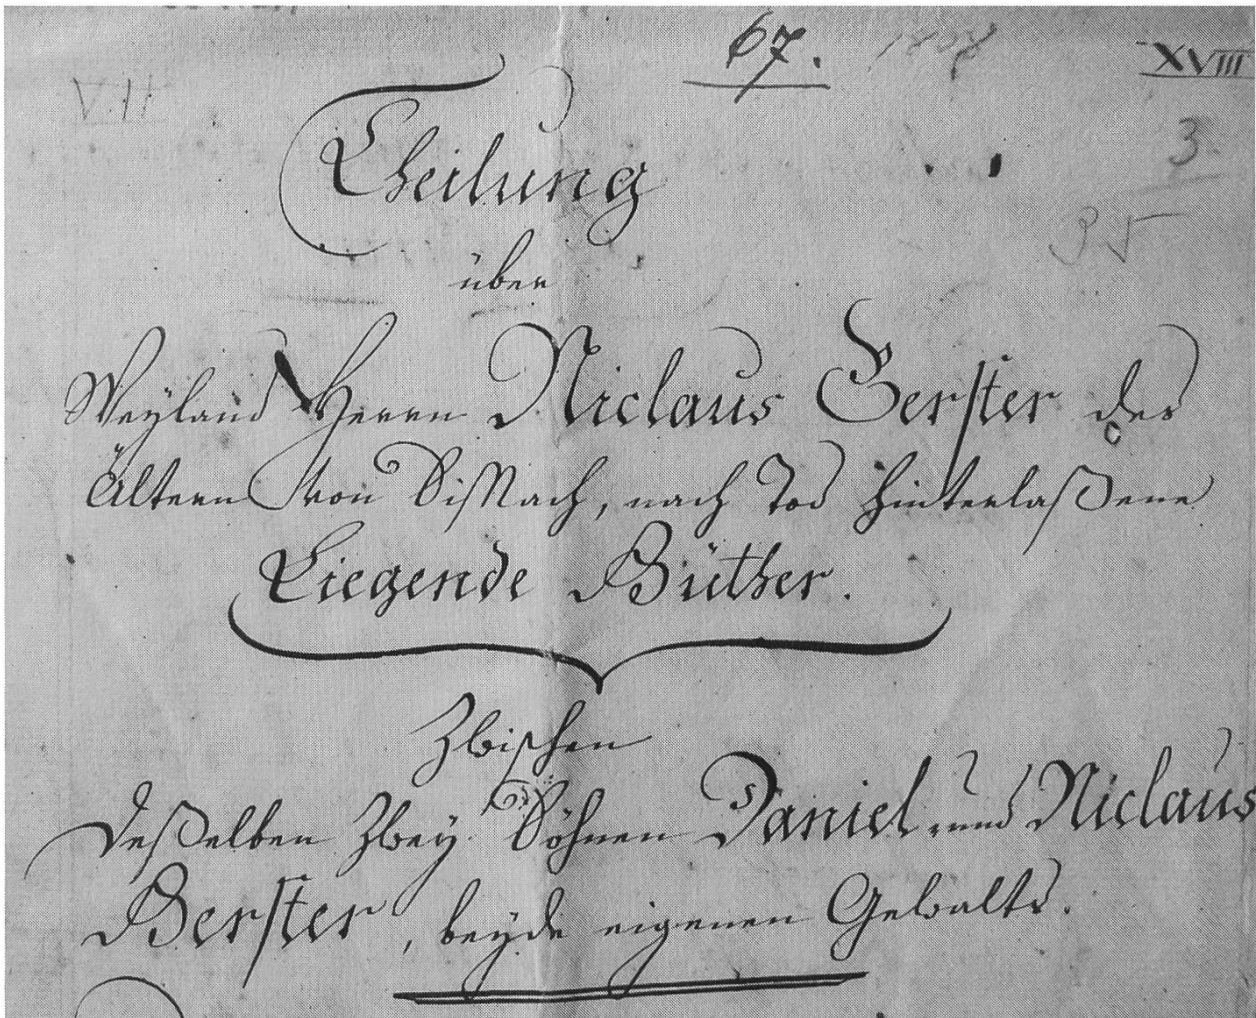 67. 1808
XVIII
VII
3.
35
Theilung
über
Weyland Herrn Niclaus Gerster des
Ältern von Sissach, nach Tod hinterlaßene
Liegende Güther.
Zwischen
deßelben zwey Söhnen Daniel und Niclaus
Gerster, beyde eigenen Gewalts.